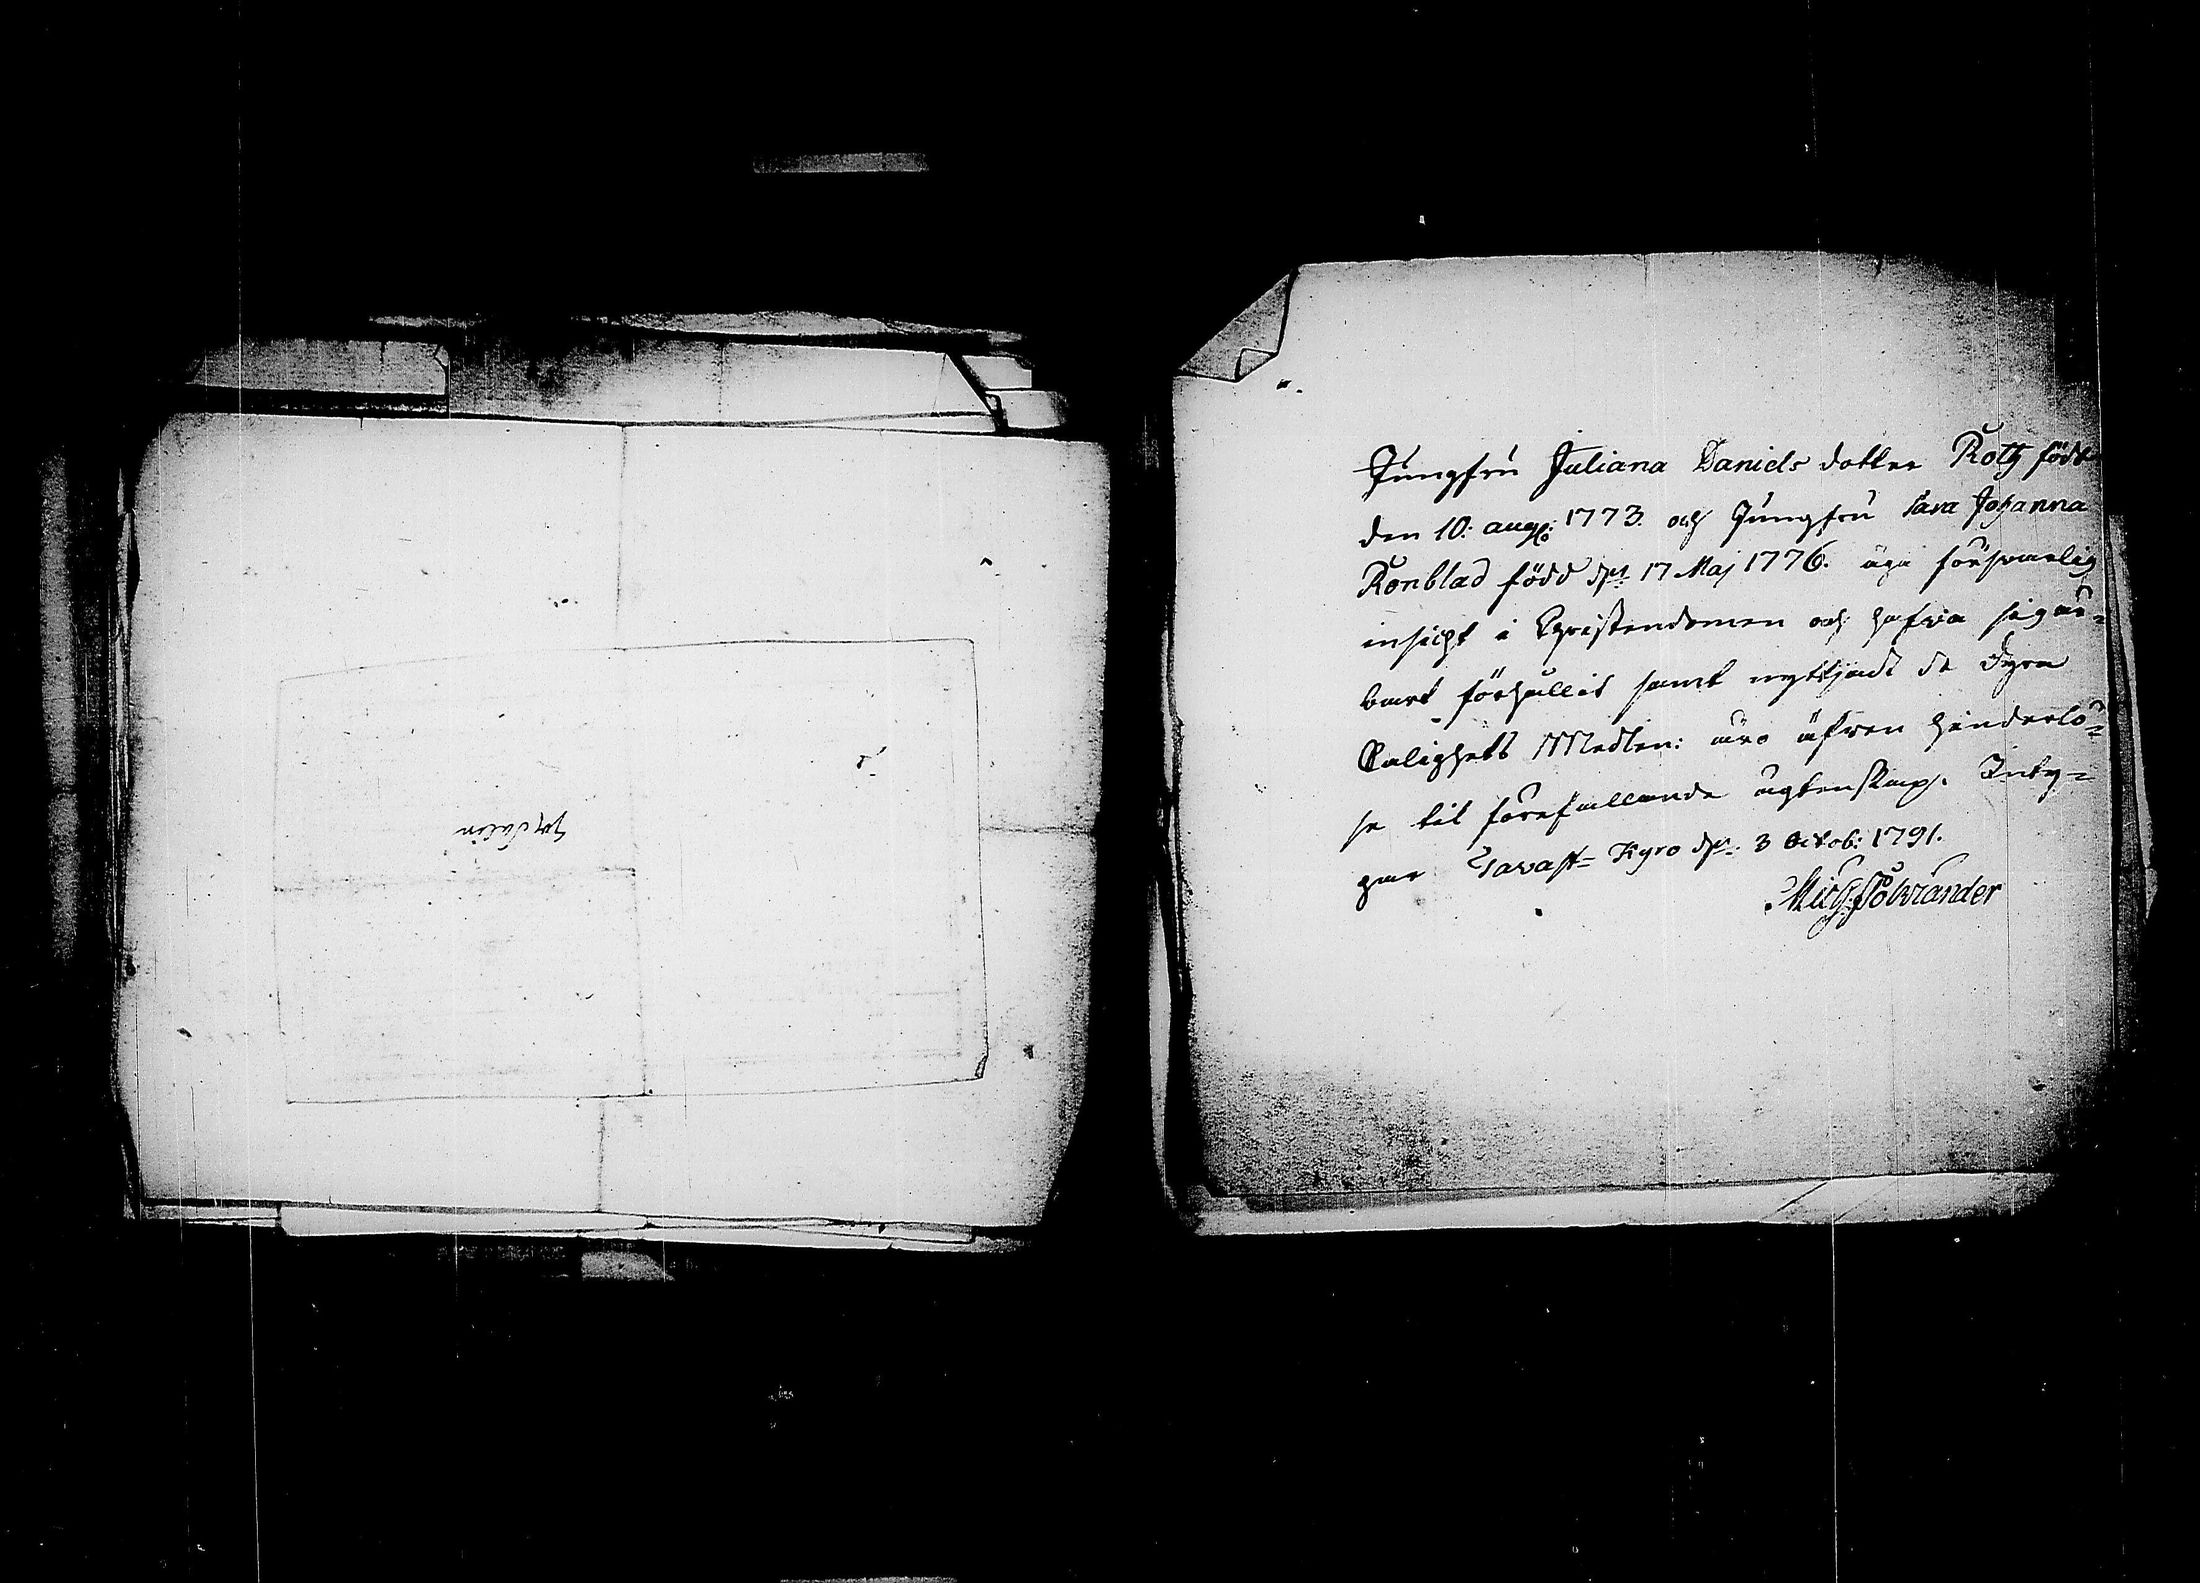 Jungfru Juliana Daniels dotter Roth född
den 10: aug: 1773. och Jungfru Sara Johanna
Rönblad född d. 17 Maj 1776. äga förswarlig
insicht i Christendomen och hafwa sig är=
bart förhållit samt nyttjadt de dyra
Salighets Medlen: äro äfwen hinderlö=
se til förefallande ägtenskap. Inty=
gar Tavast= Kyro d. 3 Octob: 1791.
Mich: Polviander